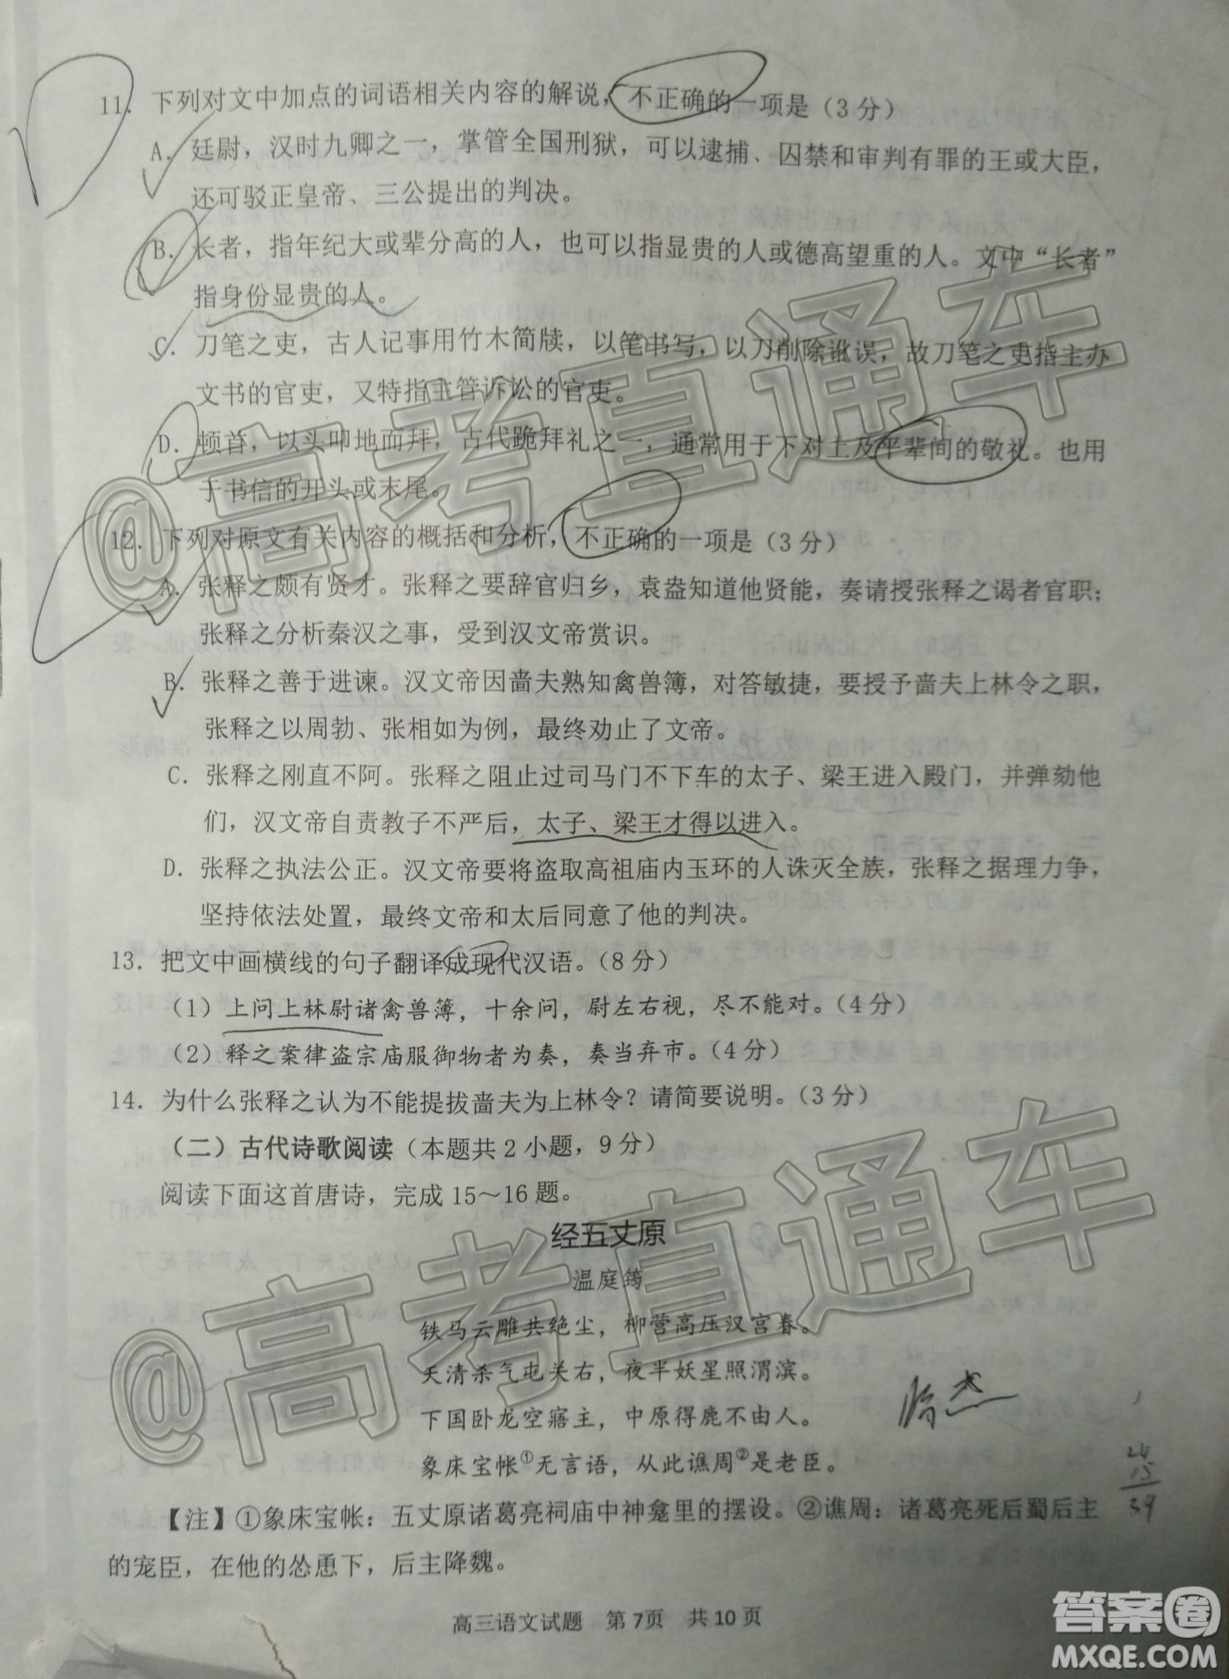 11．下列对文中加点的词语相关内容的解说，不正确的一项是（3 分）
A．廷尉，汉时九卿之一，掌管全国刑狱，可以逮捕、囚禁和审判有罪的王或大臣，
还可驳正皇帝、三公提出的判决。
B．长者，指年纪大或辈分高的人，也可以指显贵的人或德高望重的人。文中“长者”
指身份显贵的人。
C．刀笔之吏，古人记事用竹木简牍，以笔书写，以刀削除讹误，故刀笔之吏指主办
文书的官吏，又特指主管诉讼的官吏。
D．顿首，以头叩地而拜，古代跪拜礼之一，通常用于下对上及平辈间的敬礼。也用
于书信的开头或末尾。
12．下列对原文有关内容的概括和分析，不正确的一项是（3 分）
A．张释之颇有贤才。张释之要辞官归乡，袁盎知道他贤能，奏请授张释之谒者官职；
张释之分析秦汉之事，受到汉文帝赏识。
B．张释之善于进谏。汉文帝因啬夫熟知禽兽簿，对答敏捷，要授予啬夫上林令之职，
张释之以周勃、张相如为例，最终劝止了文帝。
C．张释之刚直不阿。张释之阻止过司马门不下车的太子、梁王进入殿门，并弹劾他
们，汉文帝自责教子不严后，太子、梁王才得以进入。
D．张释之执法公正。汉文帝要将盗取高祖庙内玉环的人诛灭全族，张释之据理力争，
坚持依法处置，最终文帝和太后同意了他的判决。
13．把文中画横线的句子翻译成现代汉语。（8 分）
（1）上问上林尉诸禽兽簿，十余问，尉左右视，尽不能对。（4 分）
（2）释之案律盗宗庙服御物者为奏，奏当弃市。（4 分）
14．为什么张释之认为不能提拔啬夫为上林令？请简要说明。（3 分）
（二）古代诗歌阅读（本题共 2 小题，9 分）
阅读下面这首唐诗，完成 15～16 题。
经五丈原
温庭筠
铁马云雕共绝尘，柳营高压汉宫春。
天清杀气屯关右，夜半妖星照渭滨。
下国卧龙空寤主，中原得鹿不由人。
象床宝帐①无言语，从此谯周②是老臣。
【注】①象床宝帐：五丈原诸葛亮祠庙中神龛里的摆设。②谯周：诸葛亮死后蜀后主
的宠臣，在他的怂恿下，后主降魏。
高三语文试题 第 7页 共 10 页
@高考直通车
@高考直通车
答案圈
MXQE.COM